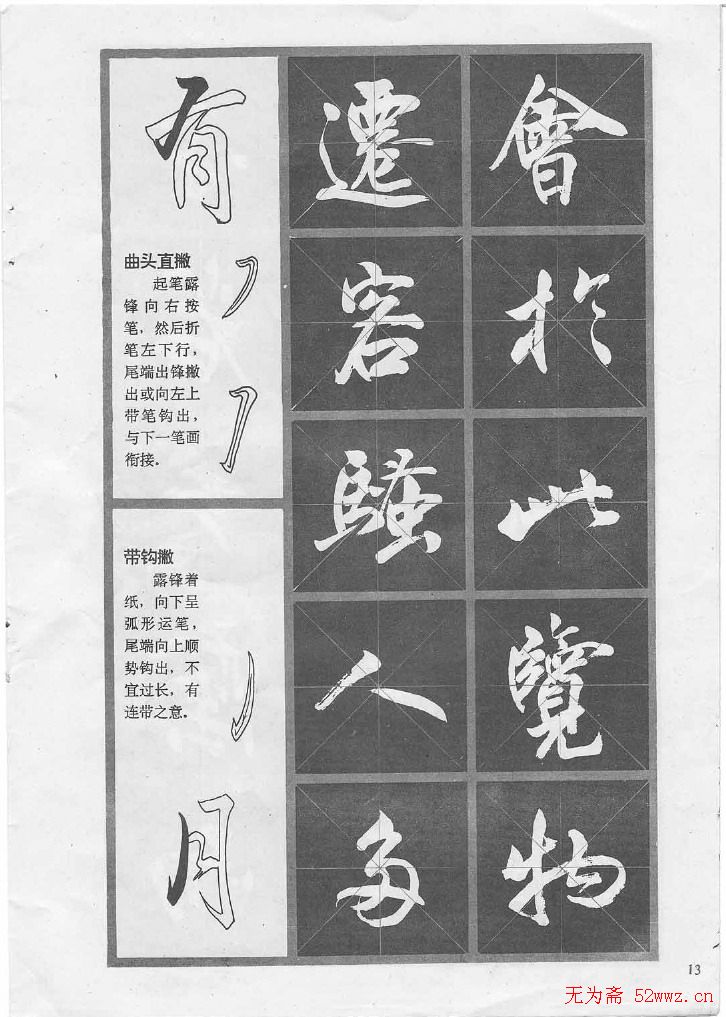 會於此覽物
遷客騷人多
有
曲头直撇
起笔露
锋向右按
笔，然后折
笔左下行，
尾端出锋撇
出或向左上
带笔钩出，
与下一笔画
衔接。
带钩撇
露锋着
纸，向下呈
弧形运笔，
尾端向上顺
势钩出，不
宜过长，有
连带之意。
月
13
无为斋 52wwz.cn